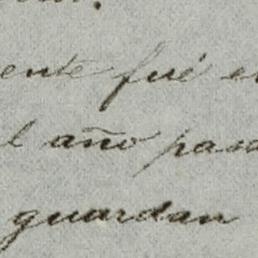 ente fué e
l año pasa
guardan